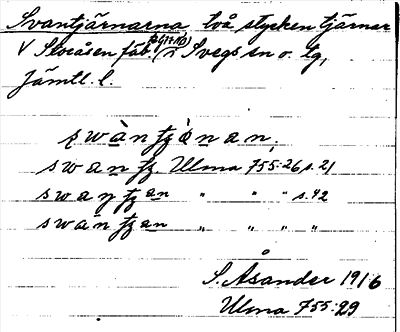 Svantjärnarna två stycken tjärnar
V Slvåsen fäb. i Svegs sn o. tg,
Jämtl. l.
swàntj̣ànan,
swantj. Ulma 755:26 s. 21
swantjan " " " s. 42
swantjan " " " "
S. Åsander 1916
Ulma 755:29